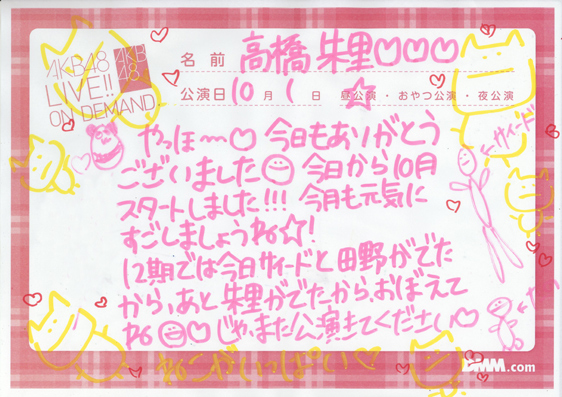 AKB48
LIVE!!
ON DEMAND
AKB
48
名前 高橋朱里♡♡♡
公演日 10月1日 昼公演・おやつ公演・夜公演
やっほ〜♡ 今日もありがとう
ございました 今日から10月
スタートしました!!! 今月も元気に
すごしましょうね☆!
12期では今日サイードと田野がでた
から、あと朱里がでたから、おぼえて
ね♡じゃ、また公演きてください♡
←サイード
ねこがいっぱい♡
DMM.com